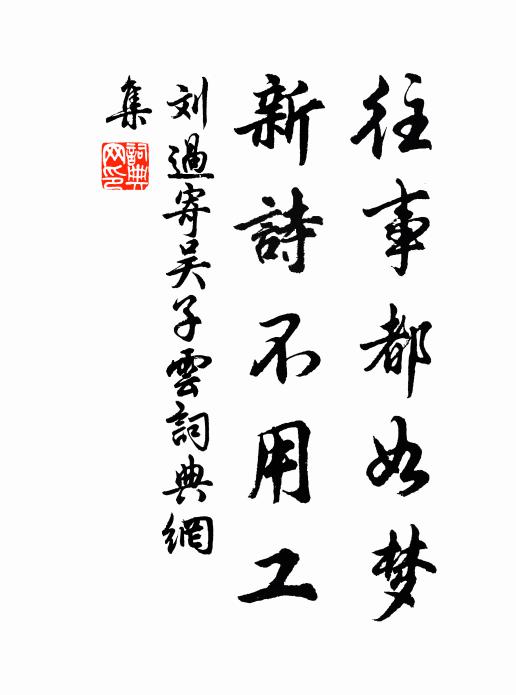 往事都如梦
新詩不用工
刘過寄吴子雲詞典網
集
詞典
网印